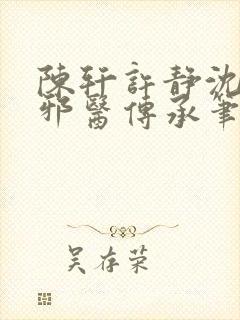 陳軒許靜沈
邪醫傳承筆
吴存荣